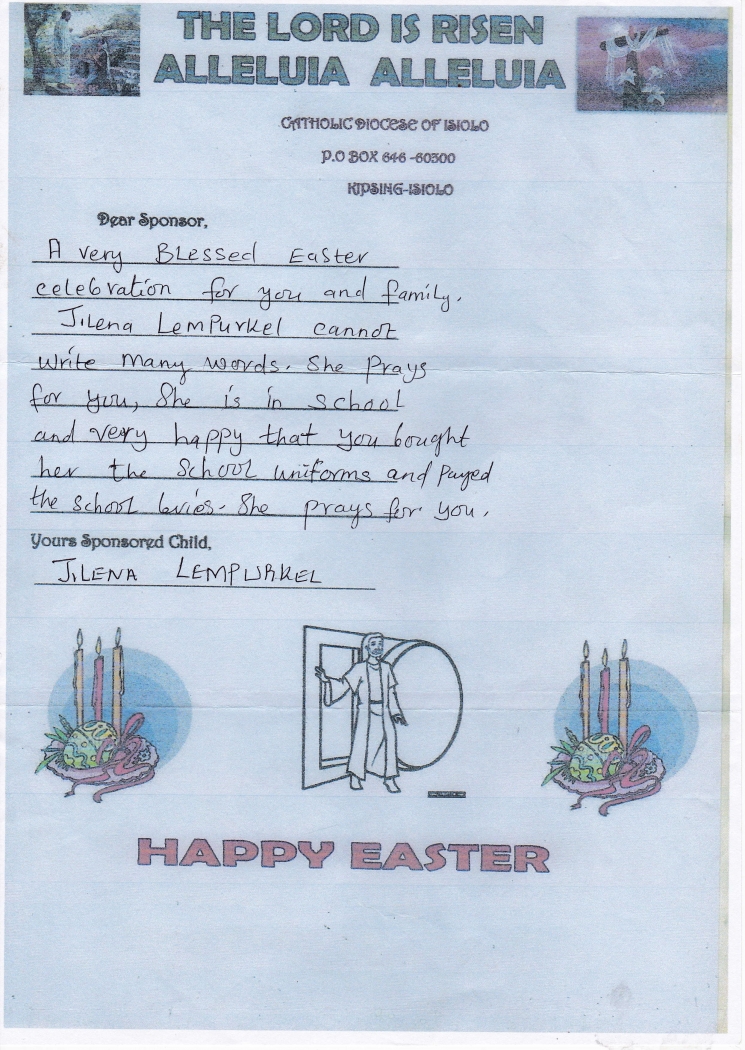 THE LORD IS RISEN
ALLELUIA ALLELUIA
CATHOLIC DIOCESE OF ISIOLO
P.O BOX 646 -60300
KIPSING-ISIOLO
Dear Sponsor,
A very Blessed Easter
celebration for you and family.
Jilena Lempurkel cannot
write many words. She Prays
for you, She is in school
and very happy that you bought
her the school uniforms and payed
the school levies. She prays for you.
Yours Sponsored Child,
JILENA LEMPURKEL
HAPPY EASTER